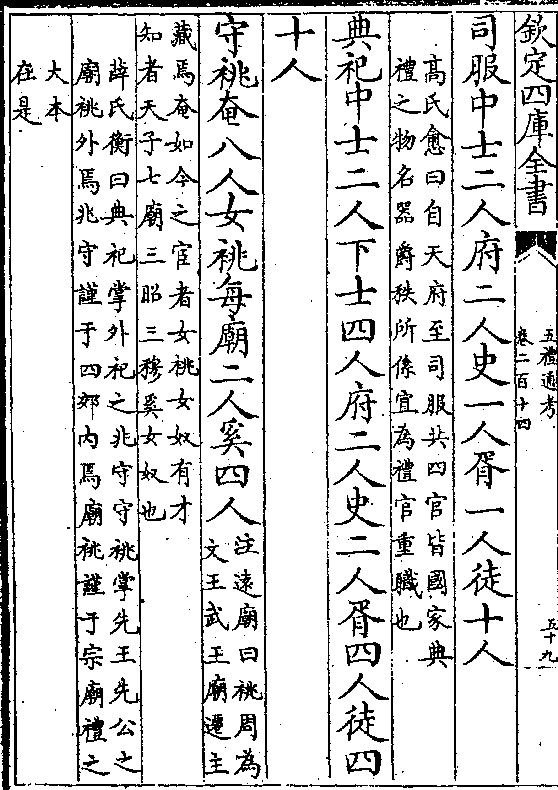 欽定四庫全書
五禮通考
卷二百十四
五十九
司服中士二人府二人史一人胥一人徒十人
高氏愈曰自天府至司服共四官皆國家典
禮之物名器爵秩所係宜為禮官重職也
典祀中士二人下士四人府二人史二人胥四人徒四
十人
守祧奄八人女祧每廟二人奚四人
注遠廟曰祧周為
文王武王廟遷主
藏焉奄如今之宦者女祧女奴有才
知者天子七廟三昭三穆奚女奴也
薛氏衡曰典祀掌外祀之兆守守祧掌先王先公之
廟祧外焉兆守謹于四郊内焉廟祧謹于宗廟禮之
大本
在是